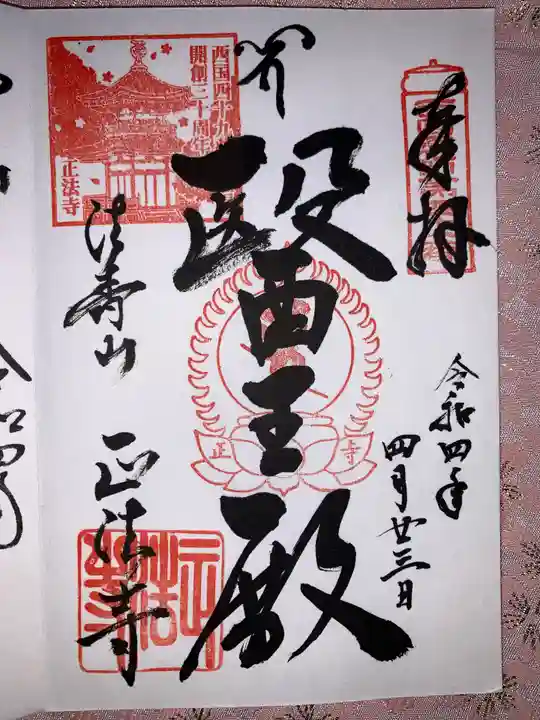 奉拝
令和四年
四月廿三日
醫王殿
西国四十九
開創三十周年
正法寺
法寿山
正法寺
正
寺